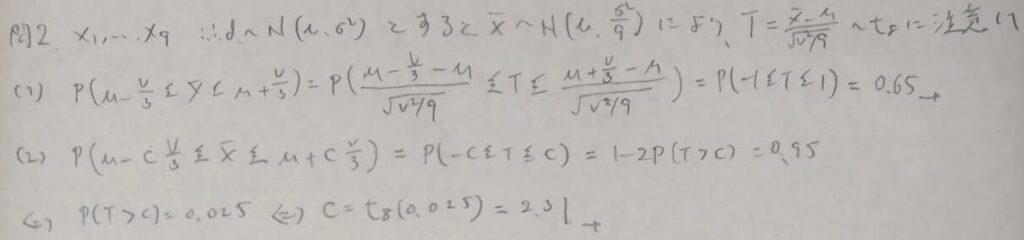 問2. X₁, ... X₉ i.i.d ~ N(μ, σ²) とすると X̄ ~ N(μ, σ²/9) により、T = (X̄-μ)/√(V²/9) ~ t₈ に注意して
(1) P(μ - V/3 ≦ X̄ ≦ μ + V/3) = P((μ - V/3 - μ)/√(V²/9) ≦ T ≦ (μ + V/3 - μ)/√(V²/9)) = P(-1 ≦ T ≦ 1) = 0.65 →
(2) P(μ - C V/3 ≦ X̄ ≦ μ + C V/3) = P(-C ≦ T ≦ C) = 1-2P(T > C) = 0.95
⇔ P(T > C) = 0.025 ⇔ C = t₈(0.025) = 2.31 →